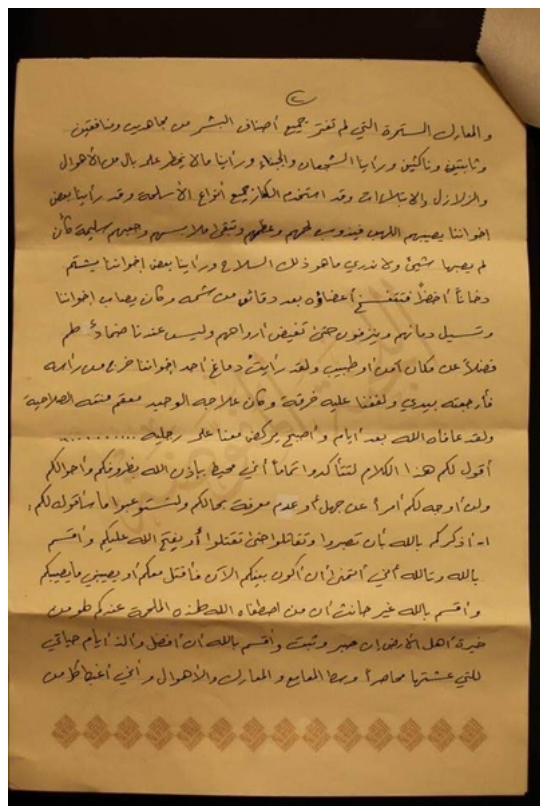 ٢
والمعارك المستمرة التي لم تفتر جميع أصناف البشر من مجاهدين ومنافقين
وثابتين وناكثين ورأينا الشجعان والجبناء ورأينا مالا يخطر على بال من الأهوال
والزلازل والابتلاءات وقد استخدم الكفار جميع أنواع الأسلحة وقد رأينا بعض
اخواننا يصيبهم اللهب فيذوب لحمهم وعظمهم وتبقى ملابسهم وجعبهم سليمة كأن
لم يصبها شيئ ولا ندري ماهو ذلك السلاح ورأينا بعض إخواننا يشتم
دخاناً أخضراً فتنتفخ أعضاؤه بعد دقائق من شمه وكان يصاب إخواننا
وتسيل دمائهم وينزفون حتى تفيض أرواحهم وليس عندنا ضماد لهم
فضلاً عن مكان آمن أو طبيب ولقد رأيت دماغ أحد إخواننا خرج من رأسه
فأرجعته بيدي ولففنا عليه خرقة وكان علاجه الوحيد معقم منته الصلاحية
ولقد عافاه الله بعد أيام وأصبح يركض معنا على رجليه ..........
أقول لكم هذا الكلام لتتأكدوا تماماً أني محيط بإذن الله بظروفكم وأحوالكم
ولن أوجه لكم أمراً عن جهل أو عدم معرفة بحالكم ولتستوعبوا ما سأقوله لكم :
١- أذكركم بالله بأن تصبروا وتقاتلوا حتى تقتلوا أو يفتح الله عليكم وأقسم
بالله وتالله أني أتمنى أن أكون بينكم الآن فأقتل معكم أو يصيبني مايصيبكم
وأقسم بالله غير حانث أن من اصطفاه الله لهذه الملحمة عندكم لهو من
خيرة أهل الأرض إن صبر وثبت وأقسم بالله أن أفضل وألذ أيام حياتي
للتي عشتها محاصراً وسط المعامع والمعارك والأهوال وأني أغبط كل من